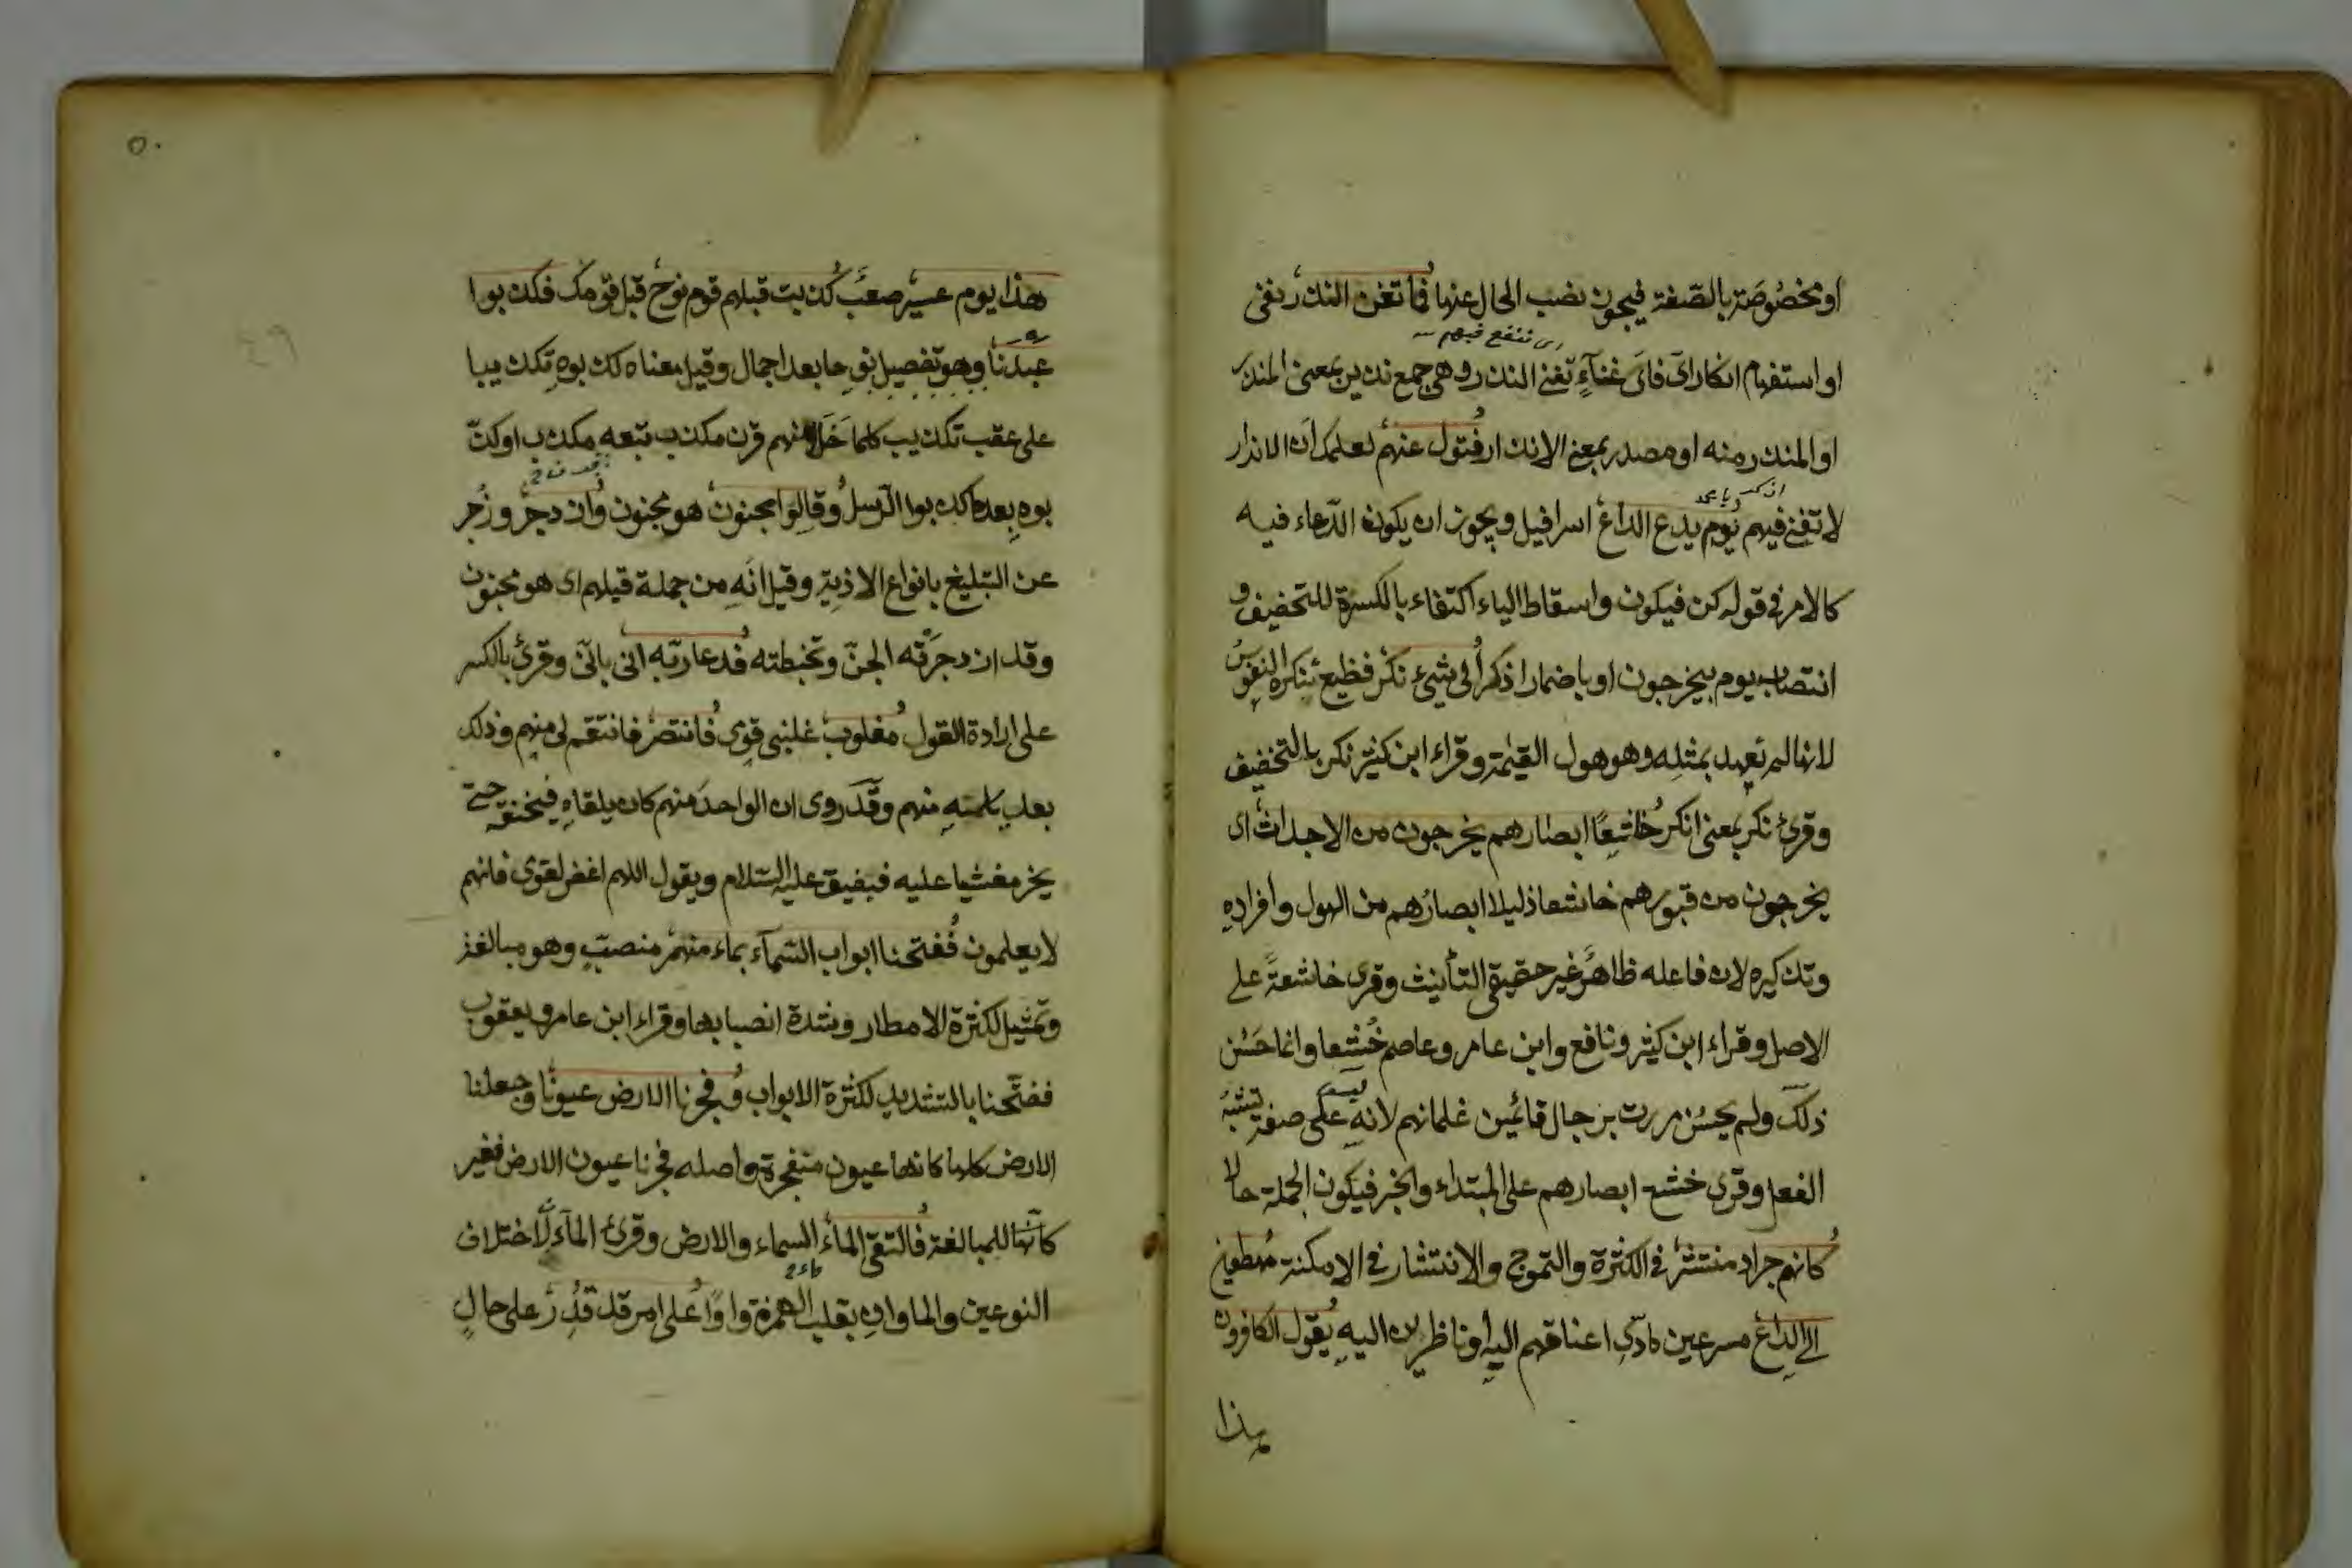 او مخصوصة بالصفة فيجوز نصب الحال عنها فما تغن النذر نفى
اى تنفع فيهم
او استفهام انكار اى فاى غناء تغنى النذر وهى جمع نذير بمعنى المنذر
او المنذر منه او مصدر بمعنى الانذار فتول عنهم لعلمك ان الانذار
لا تغنى فيهم يوم يدع الداع اسرافيل ويجوز ان يكون الدعاء فيه
كالامر فى قوله كن فيكون واسقاط الياء اكتفاء بالكسرة للتخفيف و
انتصاب يوم بيخرجون او باضمار اذكر الى شئ نكر فظيع تنكره النفوس
لانها لم تعهد بمثله وهو هول القيمة وقراء ابن كثير نكر بالتخفيف
وقرئ نكر بمعنى انكر خاشعا ابصارهم يخرجون من الاجداث اى
يخرجون من قبورهم خاشعا ذليلا ابصارهم من الهول وافراده
وتذكيره لان فاعله ظاهر غير حقيقى التأنيث وقرى خاشعة على
الاصل وقراء ابن كثير ونافع وابن عامر وعاصم خشعا وانما حسن
ذلك ولم يحسن مررت برجال قائمين غلمانهم لانه ليس على صفة تشبه
الفعل وقرى خشع ابصارهم على المبتداء والخبر فيكون الجملة حالا
كانهم جراد منتشر فى الكثرة والتموج والانتشار فى الامكنة مهطعين
الى الداع مسرعين مادى اعناقهم اليه او ناظرين اليه يقول الكافرون
هذا
٥٠
٤٩
هذا يوم عسير صعب كذبت قبلهم قوم نوح قبل قومك فكذبوا
عبدنا وهو تفصيل بعد اجمال وقيل معناه كذبوه تكذيبا
على عقب تكذيب كلما خلا منهم قرن مكذب تبعه مكذب او كذ
بوه بعد ما كذبوا الرسل وقالوا مجنون هو مجنون وازدجر وزجر
عن التبليغ بانواع الاذية وقيل انه من جملة قيلهم اى هو مجنون
وقد ازدجرته الجن وتخبطته فدعا ربه انى بانى وقرئ بالكسر
على ارادة القول مغلوب غلبنى قومى فانتصر فانتقم لى منهم وذلك
بعد ياسه منهم وقد روى ان الواحد منهم كان يلقاه فيخنقه حتى
يخر مغشيا عليه فيفيق عليه السلام ويقول اللهم اغفر لقومى فانهم
لا يعلمون ففتحنا ابواب السماء بماء منهمر منصب وهو مبالغة
وتمثيل لكثرة الامطار وشدة انصبابها وقراء ابن عامر ويعقوب
ففتحنا بالتشديد لكثرة الابواب وفجرنا الارض عيونا وجعلنا
الارض كلها كانها عيون منفجرة واصله فجرنا عيون الارض فغير
للمبالغة فالتقى الماء السماء والارض وقرئ الماآن لاختلاف
النوعين والماوان بقلب الهمزة واوا على امر قد قدر على حال